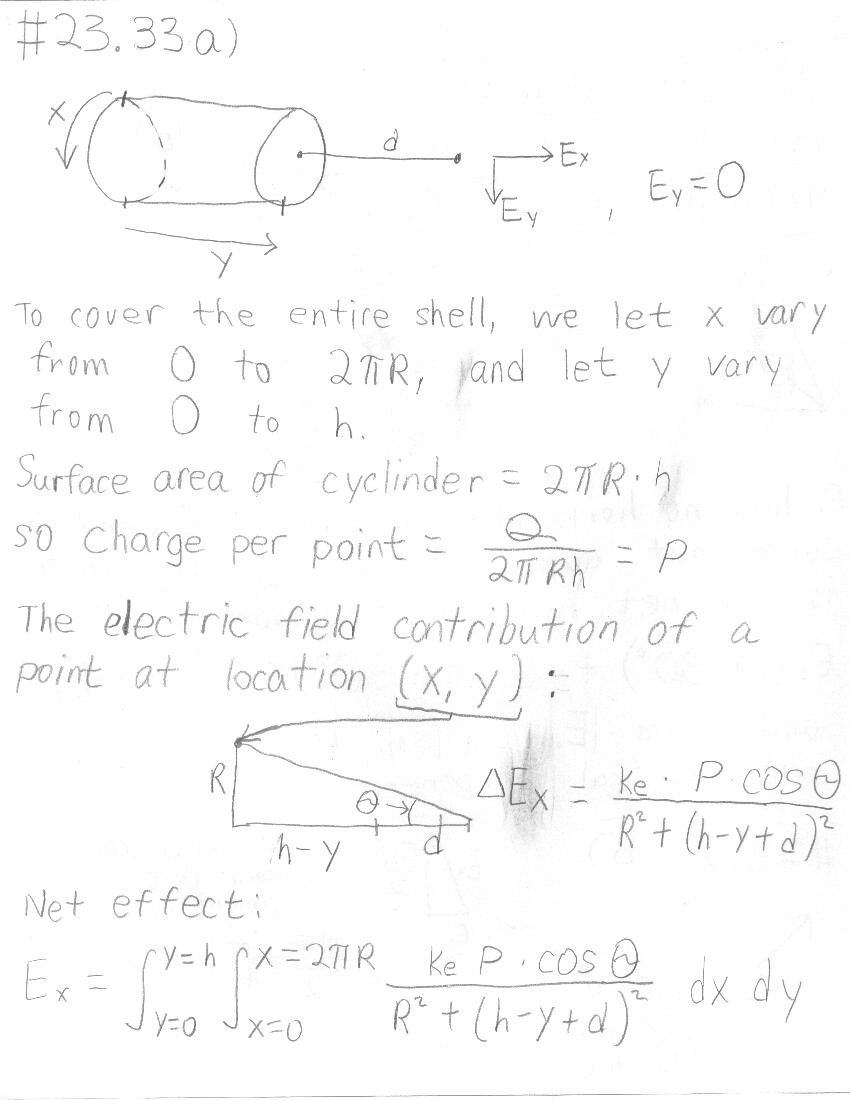 #23.33a)
x
d
Ex
Ey
, Ey=0
y
To cover the entire shell, we let x vary
from 0 to 2πR, and let y vary
from 0 to h.
Surface area of cyclinder = 2πR·h
so Charge per point = Q/(2πRh) = P
The electric field contribution of a
point at location (x, y) :
R
θ
h-y
d
ΔEx = (ke · P · cos θ)/(R²+(h-y+d)²)
Net effect:
Ex = ∫y=0^y=h ∫x=0^x=2πR (ke P · cos θ)/(R²+(h-y+d)²) dx dy